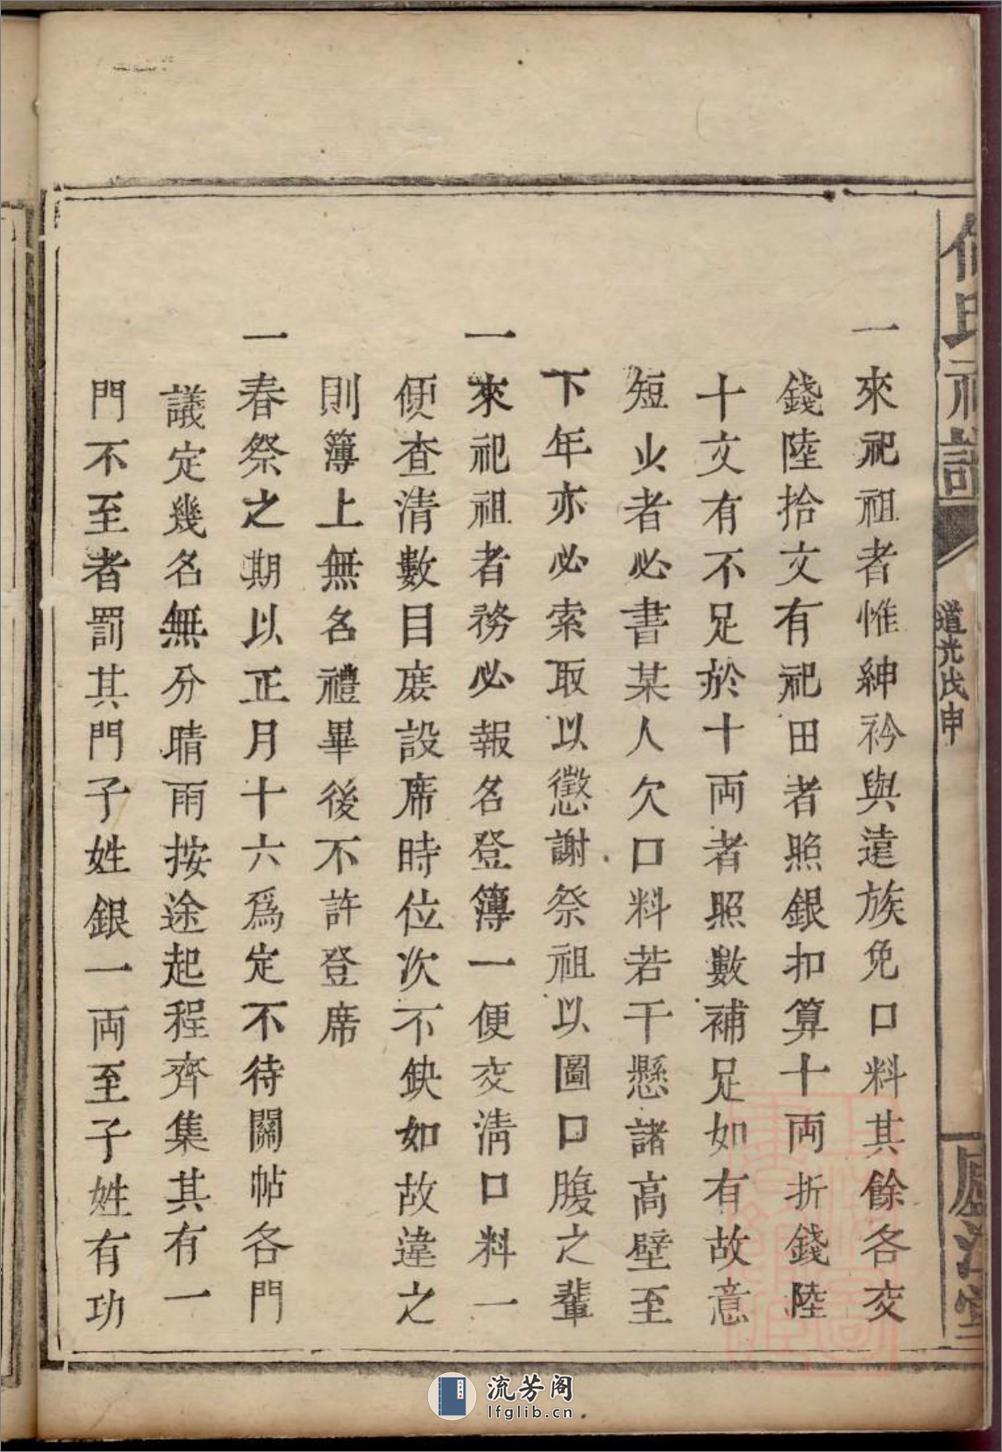 何氏祠譜
道光戊申
廬江堂
一來祀祖者惟紳衿與遠族免口料其餘各交
錢陸拾文有祀田者照銀扣算十両折錢陸
十文有不足於十両者照數補足如有故意
短少者必書某人欠口料若干懸諸高壁至
下年亦必索取以懲謝祭祖以圖口腹之輩
一來祀祖者務必報名登簿一便交淸口料一
便查清數目庻設席時位次不缺如故違之
則簿上無名禮畢後不許登席
一春祭之期以正月十六爲定不待關帖各門
議定幾名無分晴雨按途起程齊集其有一
門不至者罰其門子姓銀一両至子姓有功
流芳阁
lfglib.cn